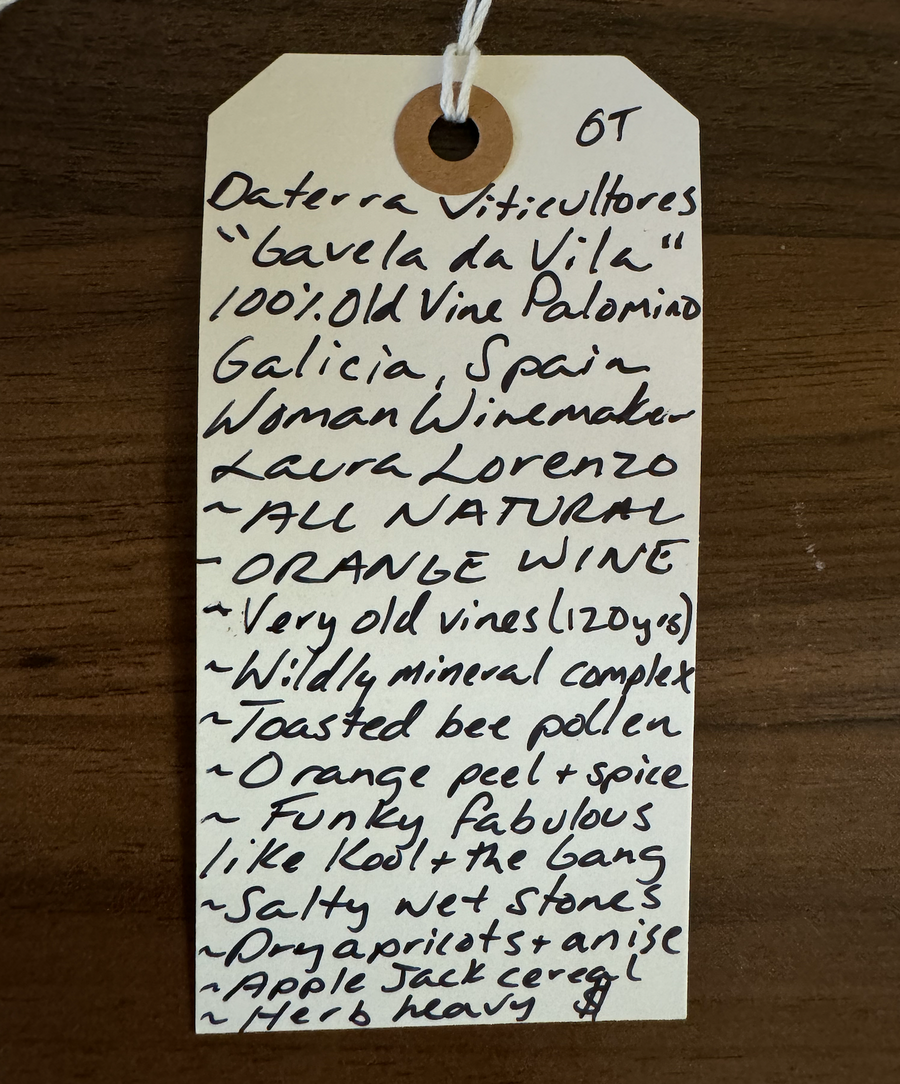 OT
Daterra Viticultores
"Gavela da Vila"
100% Old Vine Palomino
Galicia, Spain
Woman Winemaker
Laura Lorenzo
~ ALL NATURAL
- ORANGE WINE
~ Very old vines (120yrs)
~ Wildly mineral complex
~ Toasted bee pollen
~ Orange peel + spice
~ Funky fabulous
like Kool + the Gang
~ Salty wet stones
~ Dry apricots + anise
~ Apple Jack cereal
~ Herb heavy $